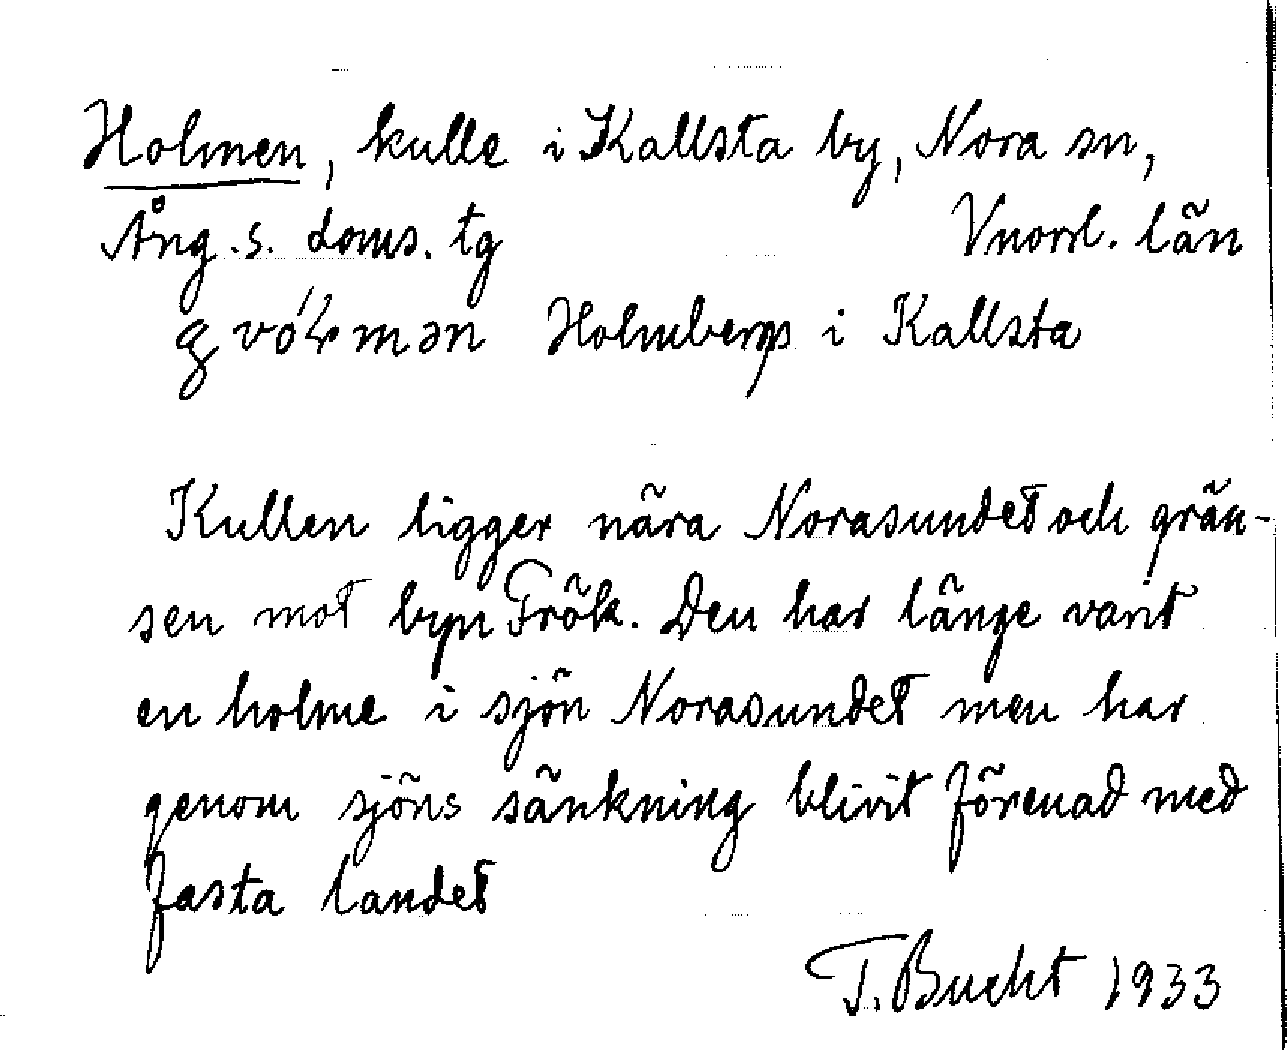 Holmen, kulle i Kallsta by, Nora sn,
Ång. s. doms. tg Vnorrl. län
Holmbergs i Kallsta
Kullen ligger nära Norasundet och grän-
sen mot byn Frök. Den har länge varit
en holme i sjön Norasundet men har
genom sjöns sänkning blivit förenad med
fasta landet
T. Bucht 1933